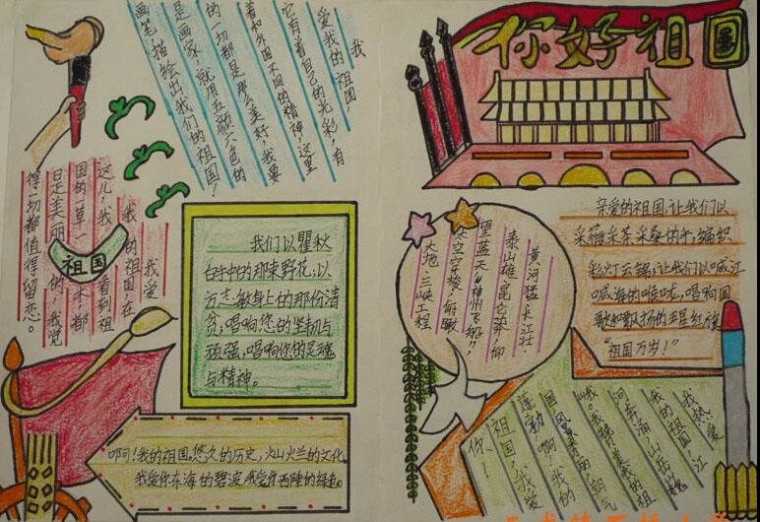 你好祖国
我
爱我的祖国
它有着自己的光彩，有
着和外国不同的精神，这里
的一切都是那么美好，我要
是画家，就用五颜六色的
画笔描绘出我们的祖国！
我爱
我的祖国，在
这儿，我看到祖
国的一草一木都
是美丽的，我觉
得一切都值得留恋。
祖国
我们以瞿秋
白手中的那束野花，以
方志敏身上的那份清
贫，唱响您的坚韧与
顽强，唱响你的灵魂
与精神。
啊！我的祖国，悠久的历史，火山火兰的文化
我爱你东海的碧波，我爱你西陲的绿意。
黄河猛，长江壮
泰山雄，昆仑莽，仰
望蓝天“神州飞船”，
太空穿梭，俯瞰
大地，三峡工程
亲爱的祖国，让我们以
采薇采茶采桑的手，编织
彩灯云锦，让我们以喊江
喊海的嗓咙，唱响国
歌和飘扬的五星红旗
“祖国万岁！”
我热爱
我的祖国，江
河奔涌，山岳巍
祖国，我爱
你！